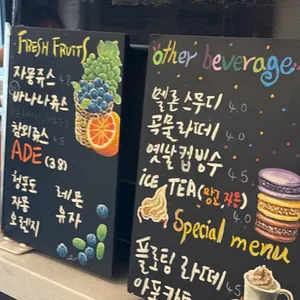 FRESH FRUITS
자몽쥬스 4.8
바나나쥬스
참외쥬스 4.5
ADE (3.8)
청포도 레몬
자몽 유자
오렌지
other beverage
멜론스무디 4.0
곡물라떼 4.0
옛날컵빙수 4.5
ICE TEA (망고 자몽) 4.0
Special menu
플로팅 라떼 4.5
아포카토